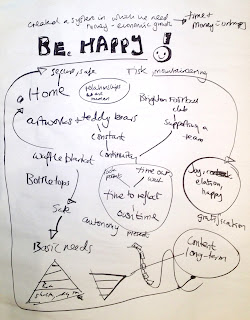 created a system in which we need
money - economic growth
time +
money =
BE. HAPPY!
secure, safe
Risk mountaineering
Home
relationships
human
Brighton Football
club
artworks + teddy bears
constant
supporting a
team
waffle blanket
continuity
Bottle tops
time out
time to reflect
own time
Joy,
elation,
happy
gratification
Safe
autonomy
present
Basic needs
Content
long-term